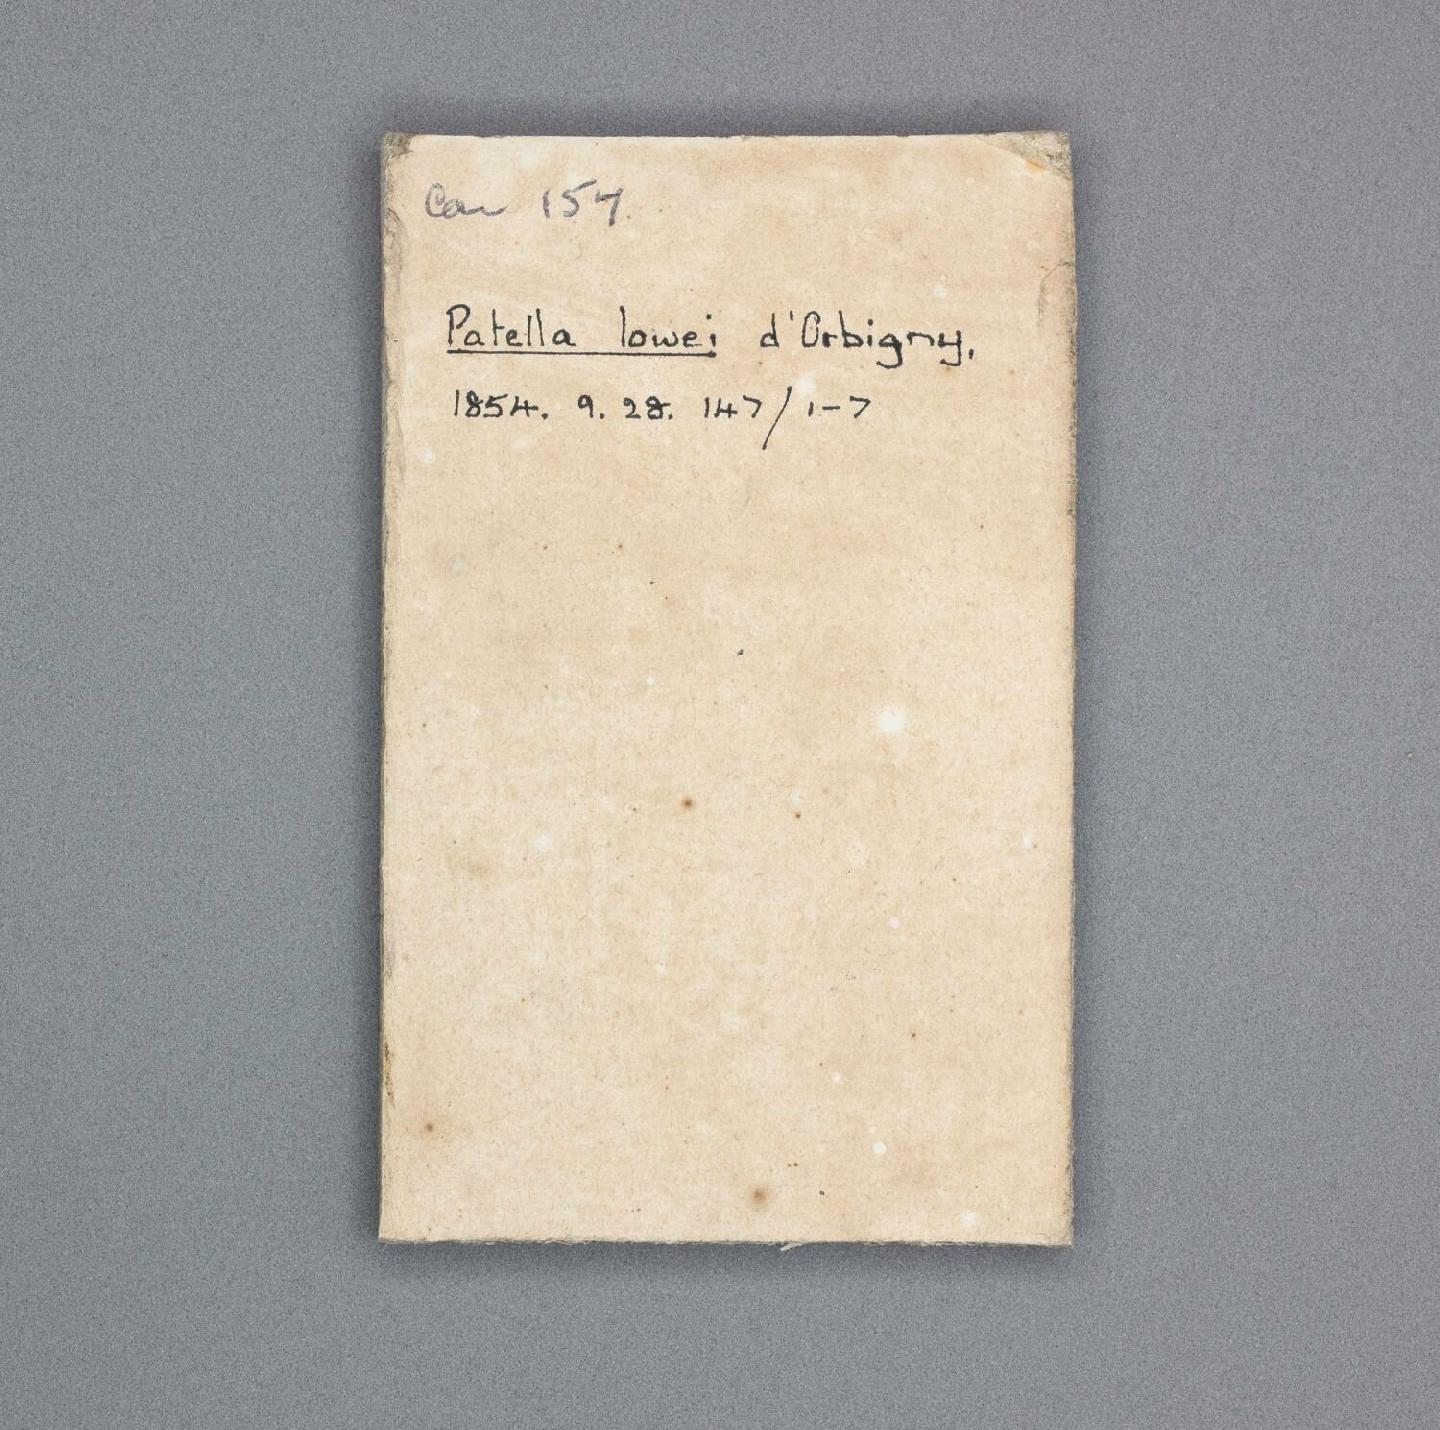 Can 154
Patella lowei d'Orbigny,
1854. 9. 28. 147/1-7